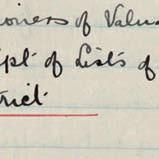 ioners of Valua
ipt of Lists of
trict